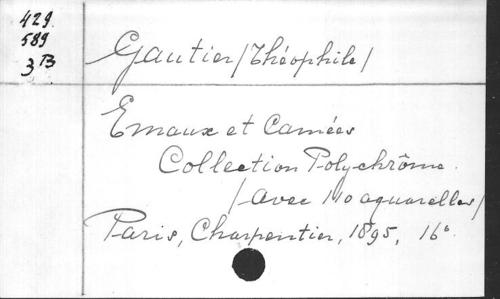 429
589
3 B
Gautier / Théophile /
Emaux et Camées
Collection Polychrôme.
/ avec 110 aquarelles /
Paris, Charpentier, 1895, 16°